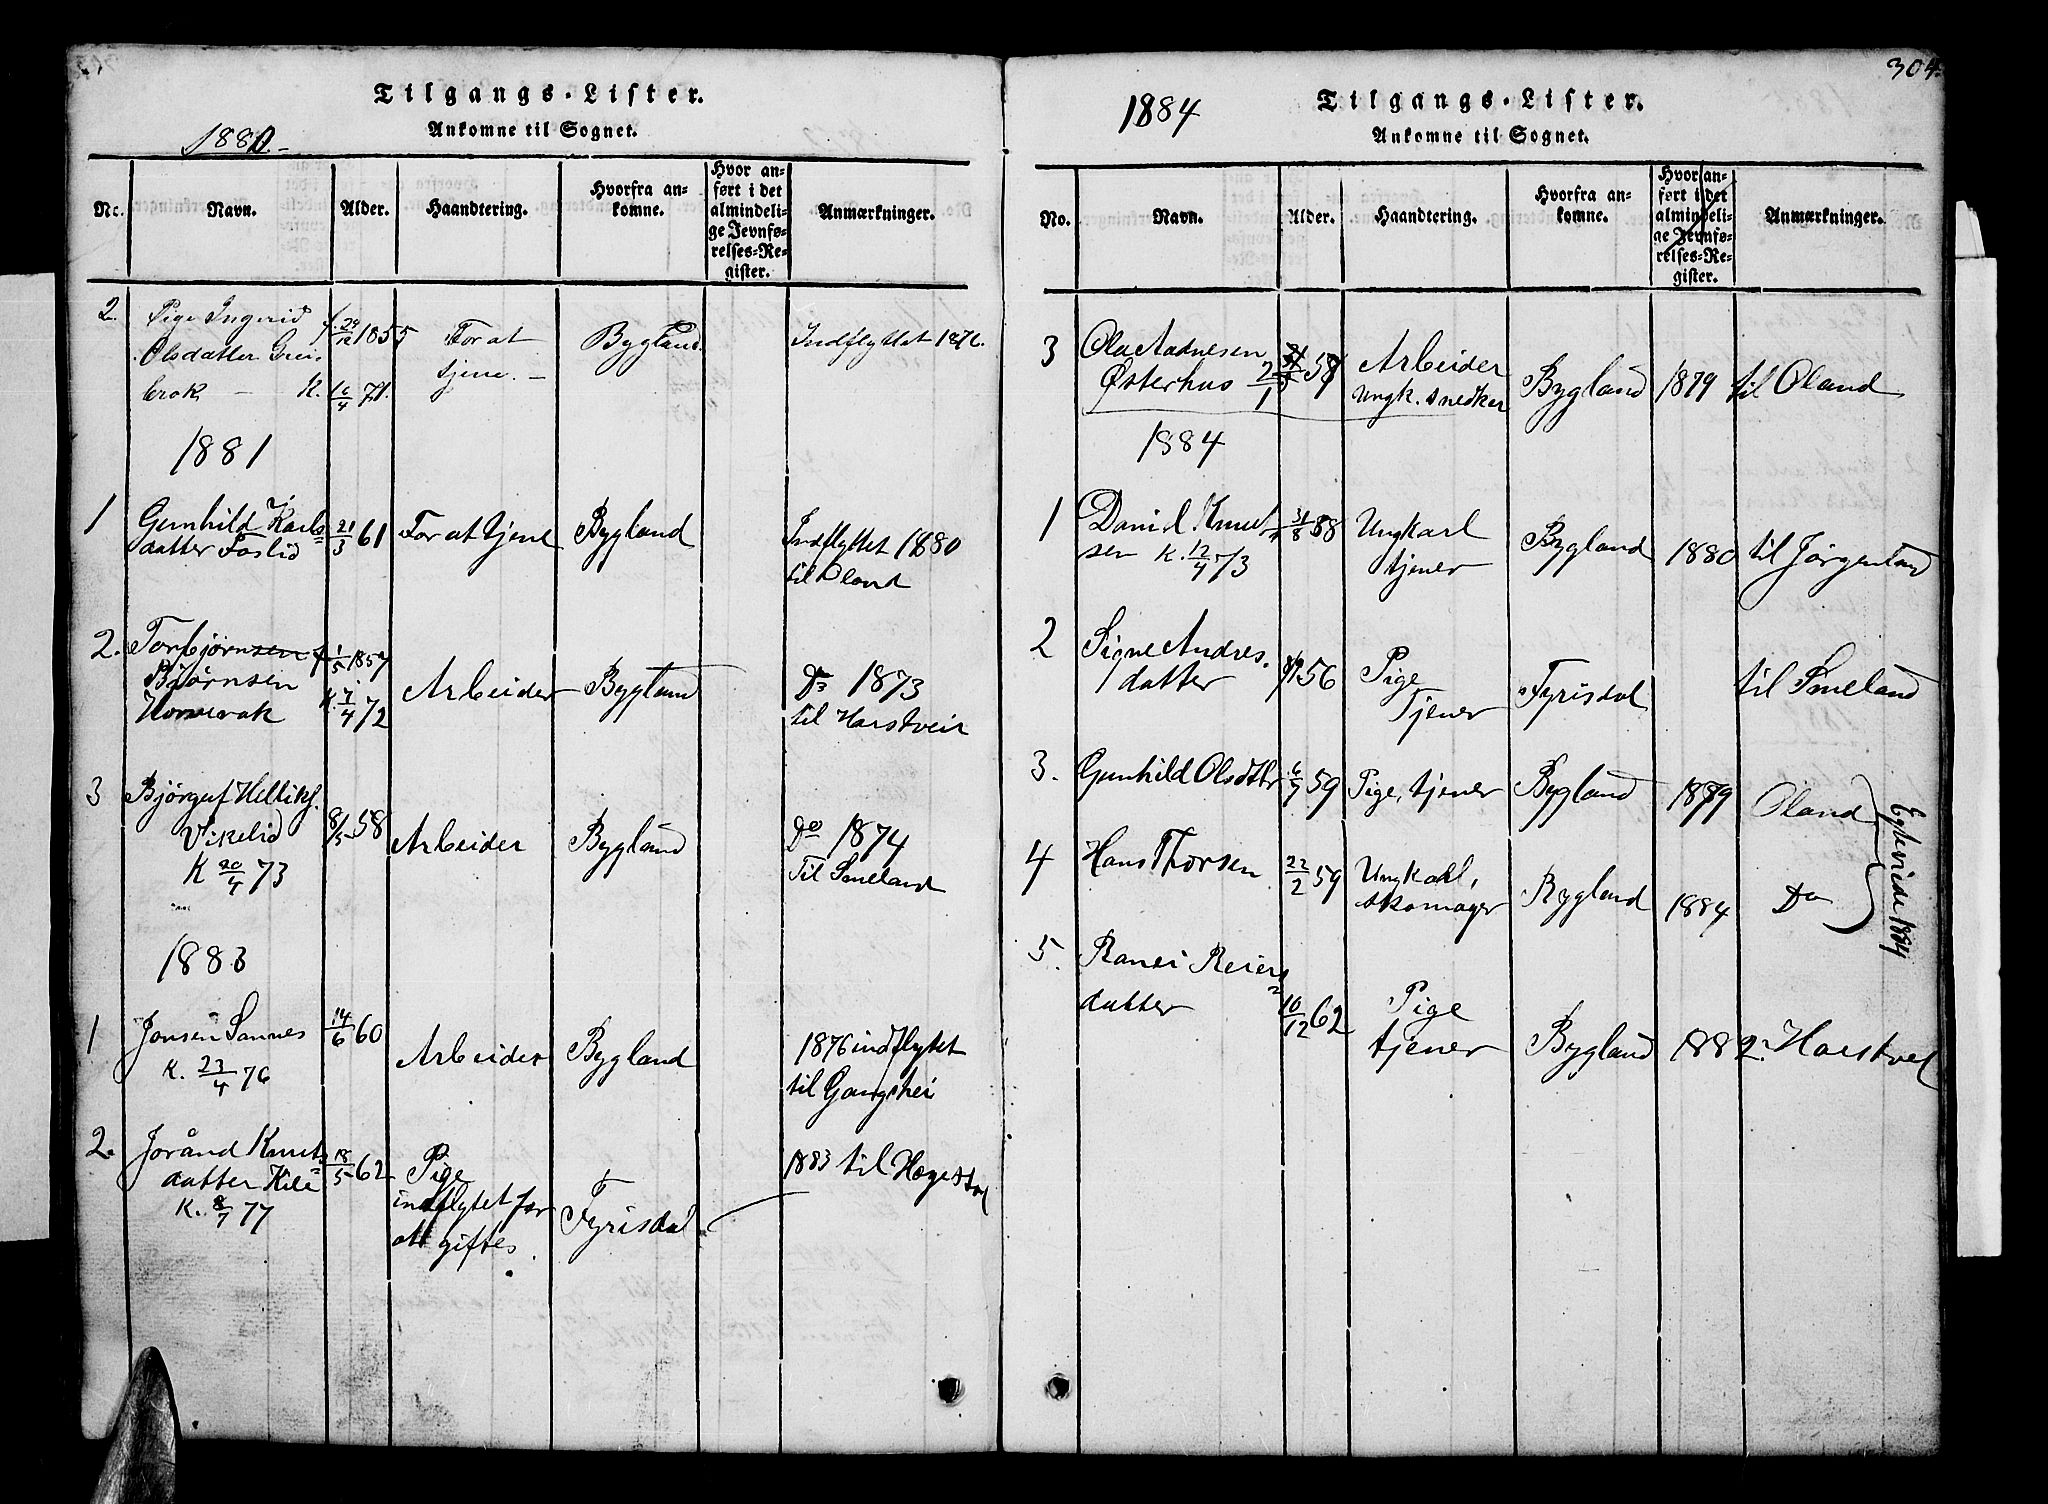 Tilgangs-Lister.
Ankomne til Sognet.
1880.
No. Navn. Alder. Haandtering. Hvorfra ankomne. Hvor anført i det almindelige Jevnførelses-Register. Anmærkninger.
2. Pige Ingerid f. 29/12 1855 For at Bygland. Indflyttet 1876.
Olsdatter tjene.
brok K. 16/4 71.
1881
1 Gunhild Karls= 21/3 61 For at tjene Bygland Indflyttet 1880
datter Foslid til Oland
2. Torbjørnsen f 1/5 1857
Bjørnsen Arbeider Bygland Do 1873
K. 7/4 72 til Harstveit
3 Bjørguf Helliks. 8/5 58 Arbeider Bygland Do 1874
Vikelid Til Smeland
K 20/4 73
1883
1 Jonsen Sannes 14/6 60 Arbeider Bygland 1876 indflytet
K. 23/4 76 til Gangshei
2. Joránd Knuts= 18/5 62 Pige 1883 til
datter Kile indflytet for Fyrisdal
K. 8/7 77 at giftes.
304.
1884
Tilgangs-Lister.
Ankomne til Sognet.
No. Navn. Alder. Haandtering. Hvorfra ankomne. Hvor anført i det almindelige Jevnførelses-Register. Anmærkninger.
3 Ola Aadnesen Arbeider Bygland 1879 til Oland
Østerhus Ungk. snedker
1884
1 Daniel Knut 31/8 58 Ungkarl Bygland 1880 til Jørgenland
sen K. 12/4 73 tjener
2 Signe Andres. 56 Pige Fyrisdal til Smeland
datter Tjener
3. Gunhild Olsdtr 6/7 59 Pige, tjener Bygland 1879 Oland
4 Hans Thorsen 22/2 59 Ungkarl, Bygland 1884 Do
skomager
Egtevidde 1884
5. Ranei Reiers= 10/12 62 Pige
datter tjener Bygland 1882. Harstvet